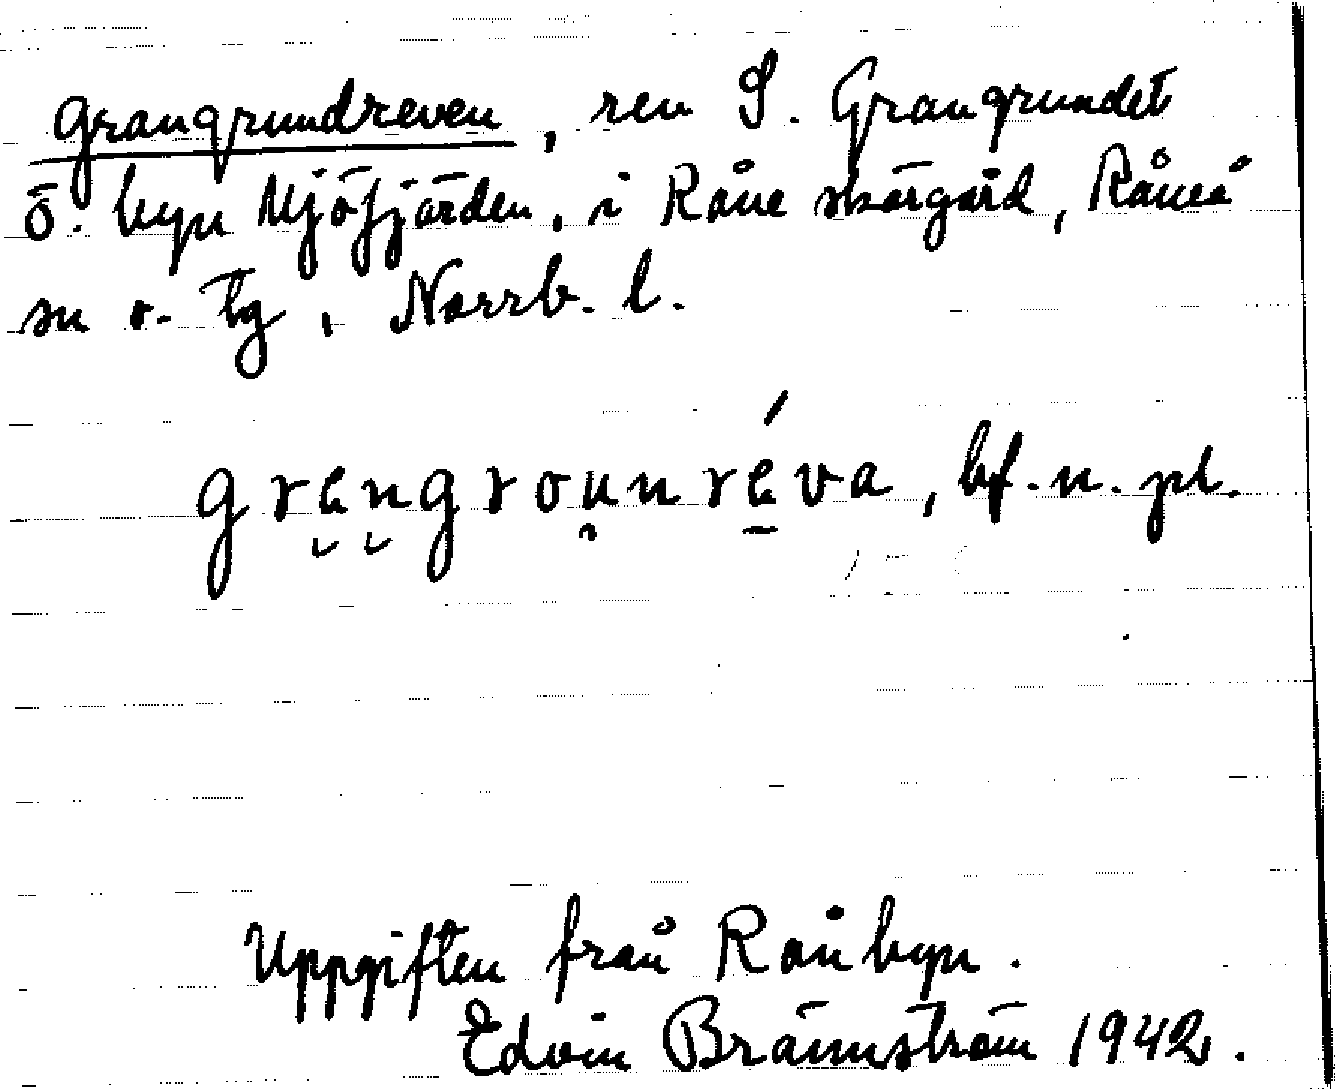 Grangrundreven, rev S. Grangrundet
ö. byn Mjöfjärden, i Råne skärgård, Råneå
sn o. tg, Norrb. l.
grɐngrounréva, bf. n. pl.
Uppgiften från Rånbyn.
Edvin Brännström 1942.